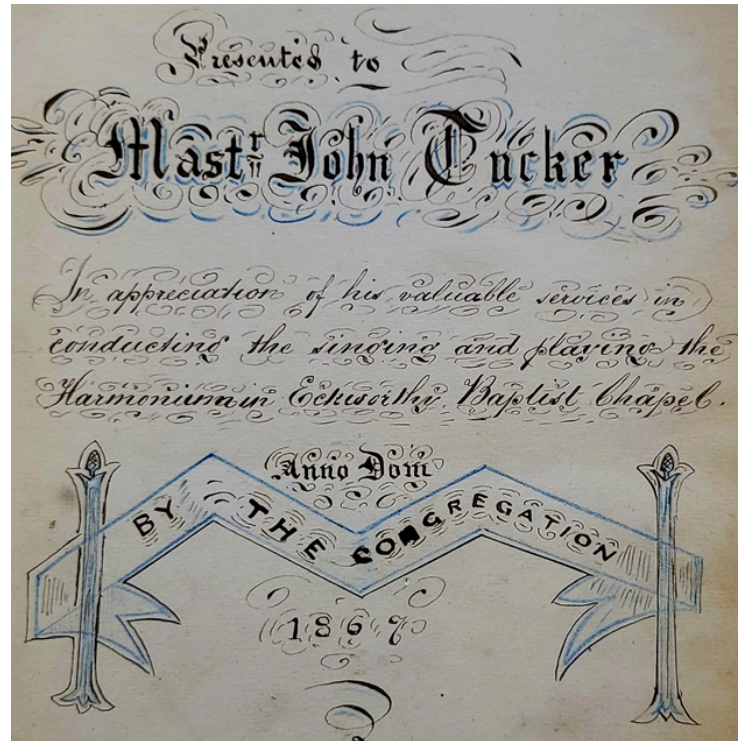 Presented to
Mastr John Tucker
In appreciation of his valuable services in
conducting the singing and playing the
Harmonium in Eckworthy Baptist Chapel.
Anno Dom
BY THE CONGREGATION
1869